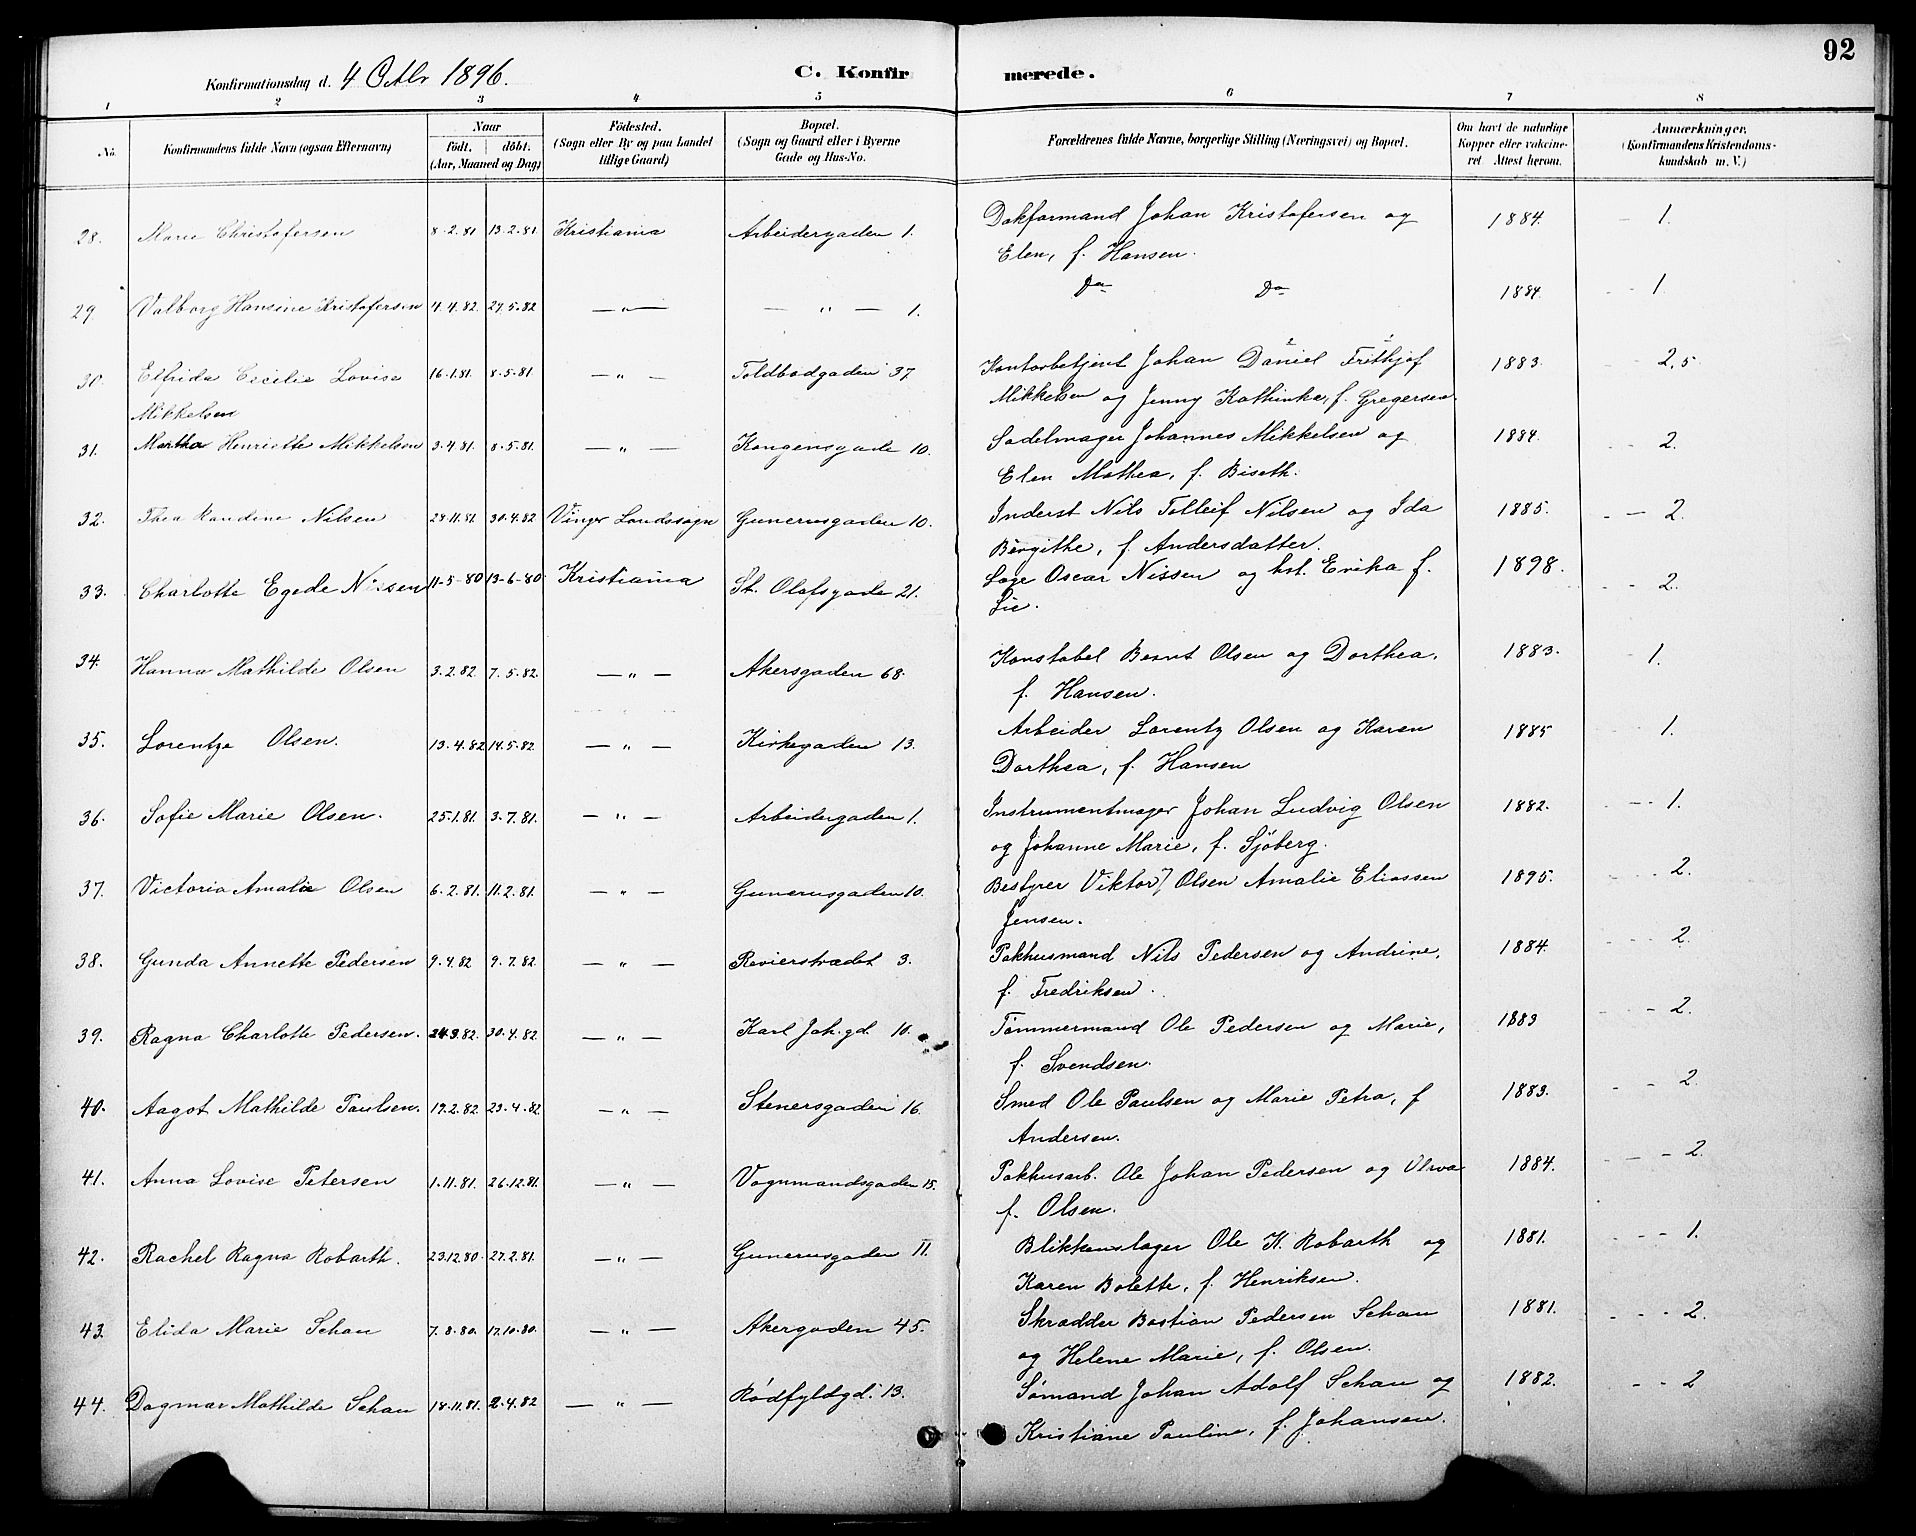 92
Konfirmationsdag d. 4 Octbr 1896.
C. Konfirmerede.
1 2 3 4 5 6 7 8
No. Konfirmandens fulde Navn (ogsaa Efternavn) Naar født. døbt. (Aar, Maaned og Dag) Fødested. (Sogn eller By og paa Landet tillige Gaard) Bopæl. (Sogn og Gaard eller i Byerne Gade og Hus-No. Forældrenes fulde Navne, borgerlige Stilling (Næringsvei) og Bopæl. Om havt de naturlige Kopper eller vakcineret. Attest herom. Anmærkninger. (Konfirmandens Kristendomskundskab m. V.)
28. Marie Christofersen 8.2.81 13.2.81 Kristiania Arbeidergaden 1. Dokformand Johan Kristofersen og 1884. — 1.
Elen, f. Hansen.
29 Valborg Hansine Kristofersen 4.4.82. 27.5.82 — " — — " — 1. Do Do 1884. - - 1.
30. Elfrida Cecilie Lovise 16.1.81. 8.5.81. — " — Toldbodgaden 37 Kontorbetjent Johan Daniel Frithjof 1883. - 2,5
Mikkelsen Mikkelsen og Jenny Kathinka, f. Gregersen.
31. Martha Henriette Mikkelsen 3.4.81. 8.5.81. — " — Kongensgade 10. Sadelmager Johannes Mikkelsen og 1884. - - 2.
Elen Mathea, f. Biseth.
32. Thea Randine Nilsen 28.11.81. 30.4.82 Vinger Landssogn Gunerusgaden 10. Inderst Nils Tolleif Nilsen og Ida 1885. - — 2.
Birgithe, f. Andersdatter.
33. Charlotte Egede Nissen 11-5-80 13-6-80 Kristiania St. Olafsgade 21. Læge Oscar Nissen og hst. Erika f. 1898. - - 2.
Lie.
34. Hanna Mathilde Olsen 3.2.82 7.5.82. — " — Akersgaden 68. Konstabel Bernt Olsen og Dorthea, 1883. - 1.
f. Hansen.
35. Lorentze Olsen. 13.4.82 14.5.82 — " — Kirkegaden 13. Arbeider Lorentz Olsen og Karen 1885 - - 1.
Dorthea, f. Hansen
36. Sofie Marie Olsen. 25.1.81. 3.7.81. — " — Arbeidergaden 1. Instrumentmager Johan Ludvig Olsen 1882. - - - 1.
og Johanne Marie, f. Sjöberg.
37. Victoria Amalie Olsen 6.2.81. 11.2.81. — " — Gunerusgaden 10. Bestyrer Viktor Olsen Amalie Eliassen 1895. - - - 2.
Jensen.
38. Gunda Annette Pedersen 9.4.82 9.7.82. — " — Revierstrædet 3. Pakhusmand Nils Pedersen og Andrine, 1884. - - - 2.
f. Fredriksen.
39. Ragna Charlotte Pedersen. 24.3.82. 30.4.82 — " — Karl Joh.gd. 10. Tømmermand Ole Pedersen og Marie, 1883 - - 2.
f. Svendsen.
40. Aagot Mathilde Paulsen. 19.2.82 23.4.82 — " — Stenersgaden 16. Smed Ole Paulsen og Marie Petra, f 1883. - - 2.
Andersen.
41. Anna Lovise Petersen 1.11.81. 26.12.81. — " — Vognmandsgaden 15. Pakhusarb. Ole Johan Pedersen og 1884. - - - 2.
f. Olsen.
42. Rachel Ragna Robarth. 23.12.80. 27.2.81. — " — Gunerusgaden 11. Blikkenslager Ole K. Robarth og 1881. - - - 1.
Karen Bolette, f. Henriksen.
43. Elida Marie Schau 7.8.80. 17.10.80. — " — Akergaden 45. Skrædder Bastian Pedersen Schau 1881. - - - 2.
og Helene Marie, f. Olsen.
44. Dagmar Mathilde Schau 18.11.81. 2.4.82 — " — Rødfyldgd. 13. Sømand Johan Adolf Schau og 1882. - - 2
Kristiane Pauline, f. Johansen.